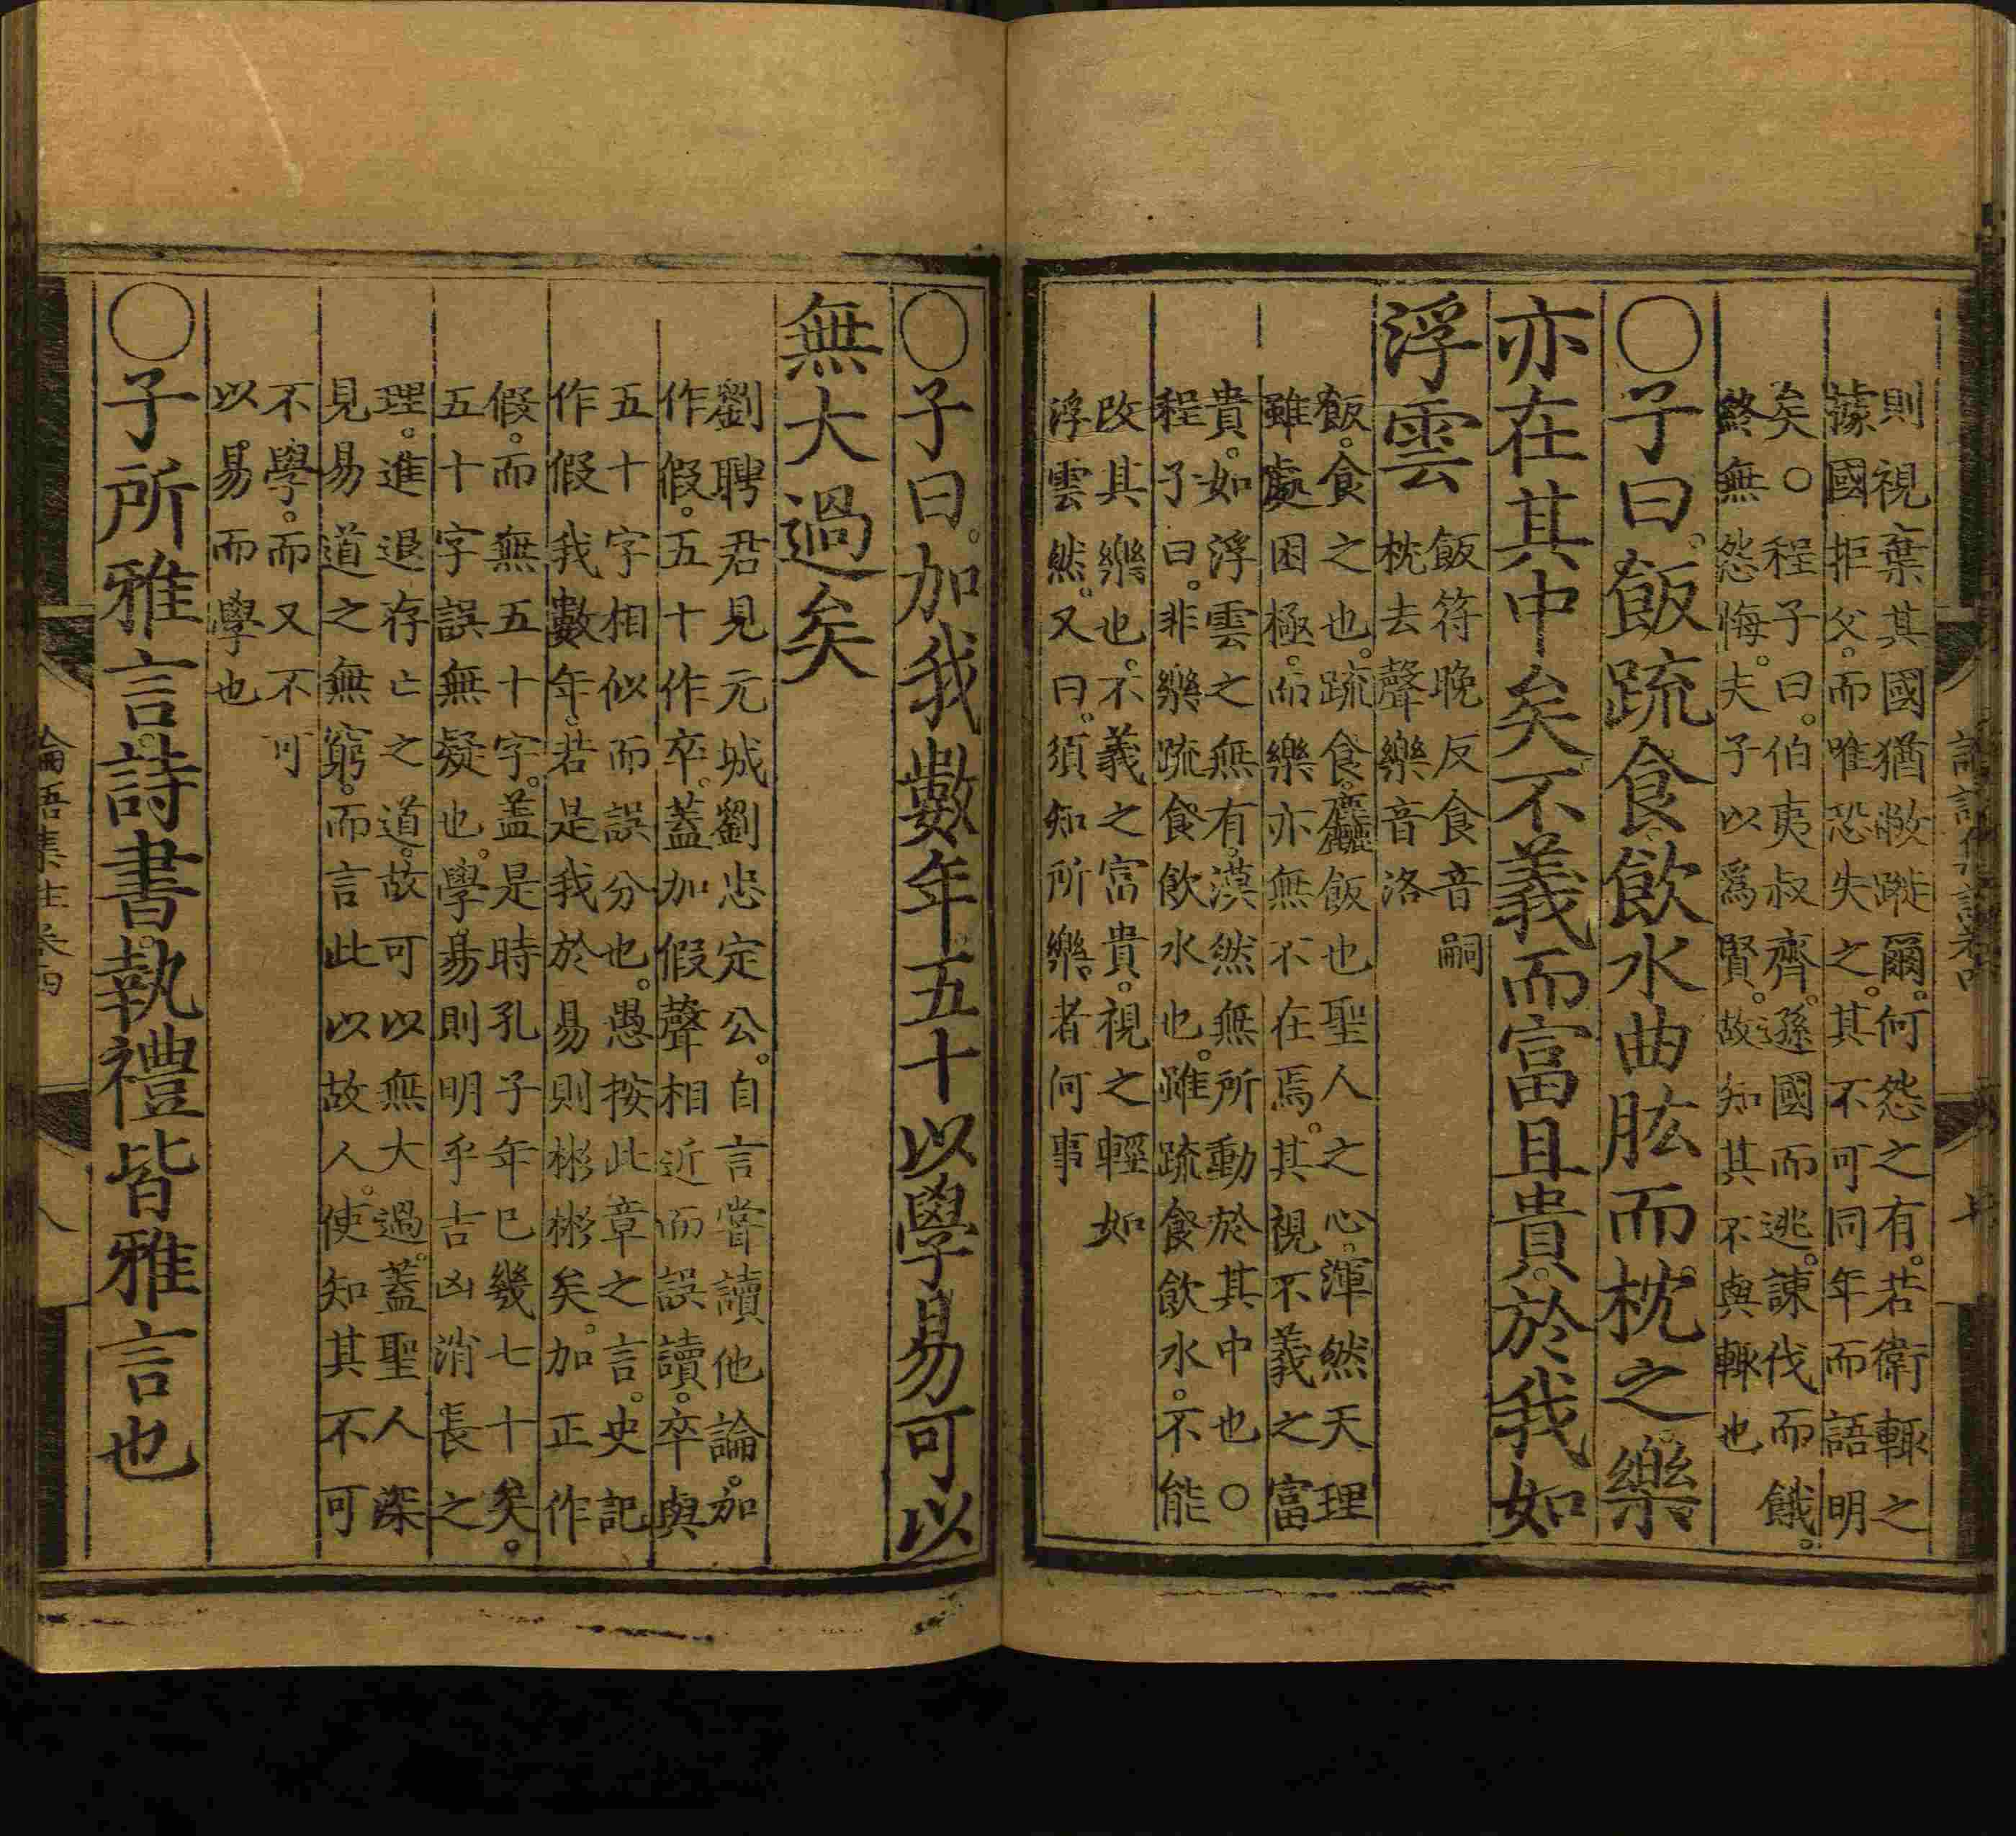 則視棄其國猶敝蹝爾。何怨之有。若衛輒之
據國拒父。而唯恐失之。其不可同年而語明
矣○程子曰。伯夷叔齊。遜國而逃。諫伐而餓。
終無怨悔。夫子以爲賢。故知其不與輒也
○子曰。飯疏食。飲水曲肱而枕之。樂
亦在其中矣不義而富且貴。於我如
浮雲
飯符晚反食音嗣
枕去聲樂音洛
飯。食之也。疏食。麤飯也聖人之心。渾然天理
雖處困極。而樂亦無不在焉。其視不義之富
貴。如浮雲之無有。漠然無所動於其中也○
程子曰。非樂疏食飲水也。雖疏食飲水。不能
改其樂也。不義之富貴。視之輕如
浮雲然。又曰。須知所樂者何事
○子曰。加我數年五十以學易可以
無大過矣
劉聘君見元城劉忠定公。自言嘗讀他論。加
作假。五十作卒。蓋加假聲相近而誤讀。卒與
五十字相似而誤分也。愚按此章之言。史記
作假我數年。若是我於易則彬彬矣。加正作
假。而無五十字。蓋是時孔子年已幾七十矣。
五十字誤無疑也。學易則明乎吉凶消長之
理。進退存亡之道。故可以無大過。蓋聖人深
見易道之無窮。而言此以故人。使知其不可
不學。而又不可
以易而學也
○子所雅言。詩書。執禮皆雅言也
論語集註卷四
八